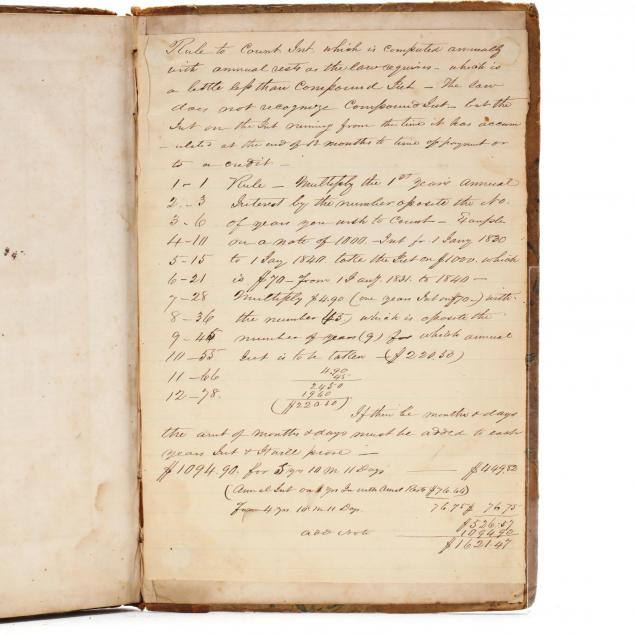 Rule to Count Int. which is computed annually
with annual rests as the law requires - which is
a little less than Compound Int - The law
does not recognize Compound Int - but the
Int on the Int running from the time it has accum
-ulated at the end of 12 months to time of payment or
to a credit -
1-1 Rule - Multiply the 1st year's annual
2-3 Interest by the number oposite the No.
3-6 of years you wish to Count - Example
4-10 on a note of 1000. Int fr 1 Jany 1830
5-15 to 1 Jay 1840. take the Int on $1000. which
6-21 is $70 - from 1 Jany 1831. to 1840 -
7-28 Multiply $4.90 (one years Int on $70-) with
8-36 the number 45, which is oposite the
9-45 number of years (9) for which annual
10-55 Int is to be taken - ($220.50)
11-66 4.90
45
12-78. 2450
1960
($220.50)
If there be months & days
the amt of months & days must be added to each
years Int & It will prove -
$1094.90. for 5 yrs 10 m 11 Days $449.82
(Annl Int on 1 yrs In with Annl Rests $76.64)
For 4 yrs 10 m 11 Day 76.75 $ 76.75
$526.57
add Note 1094.90
$1621.47